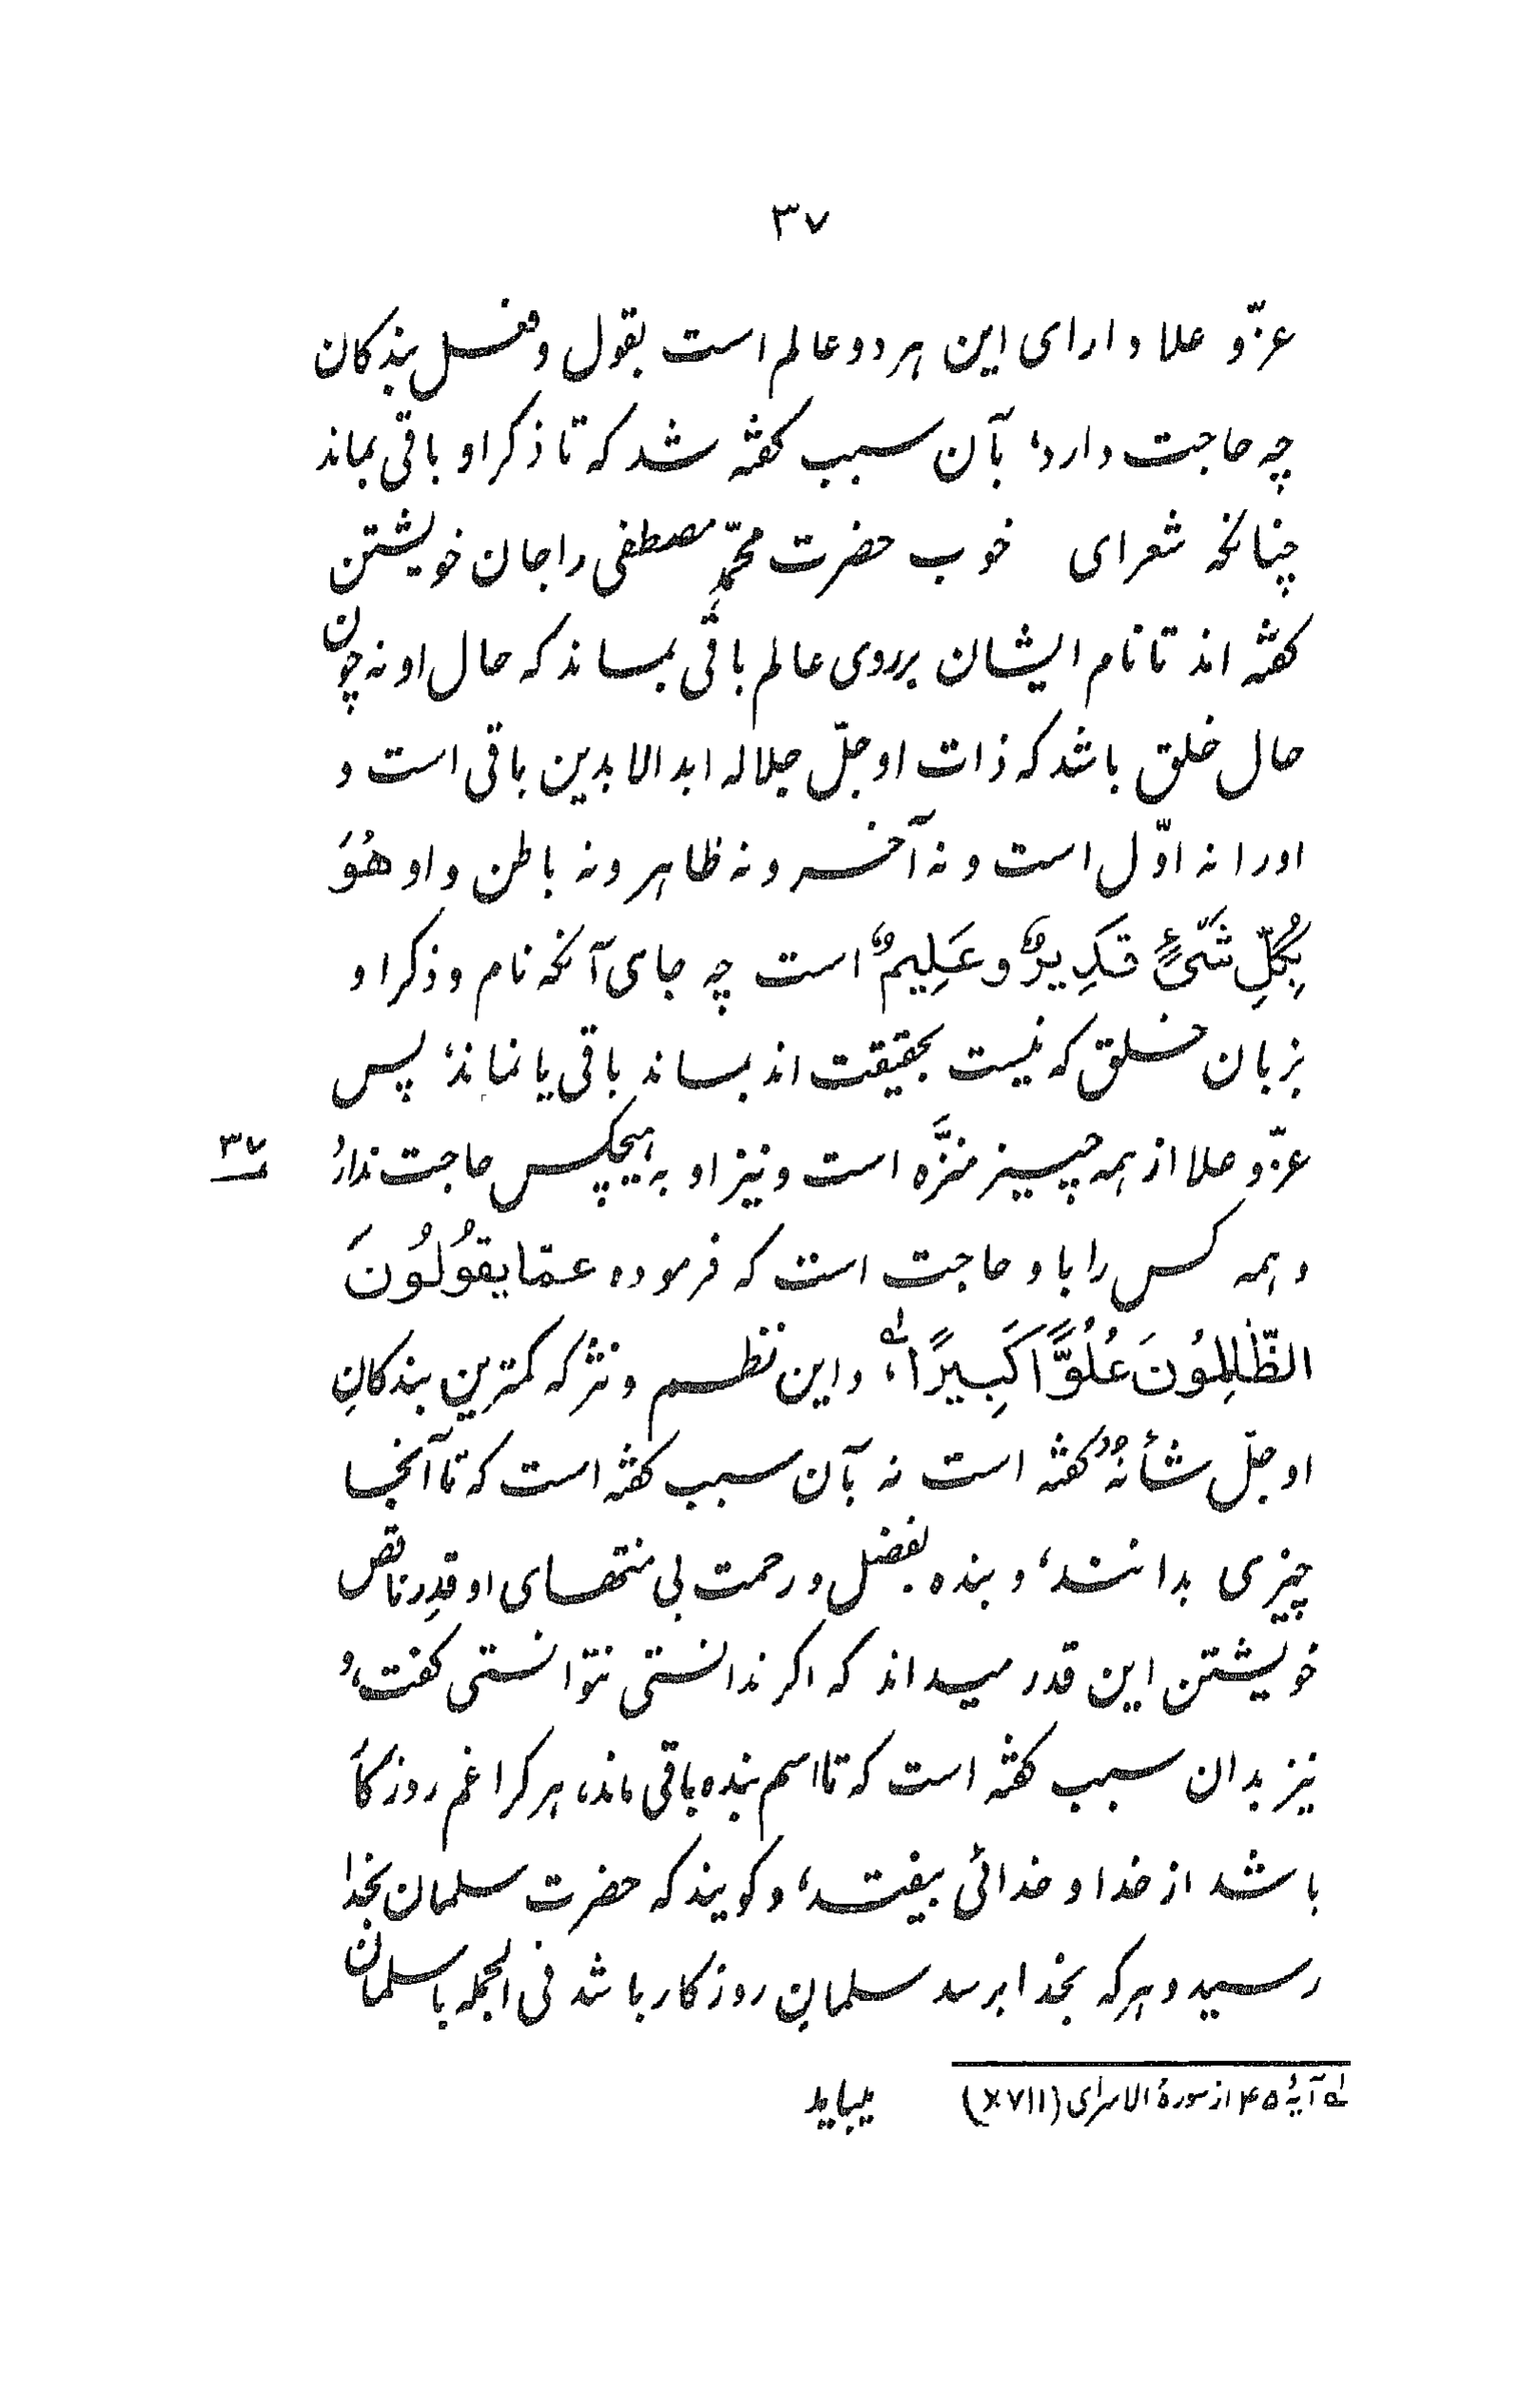 ۳۷
عزّ و علا دارای این هر دو عالم است بقول و فعل بندکان
چه حاجت دارد، بآن سبب کفته شد که تا ذکر او باقی بماند
چنانکه شعرای خوب حضرت محمّدِ مصطفی را جان خویشتن
کفته اند تا نام ایشان بر روی عالم باقی بماند که حال او نه چون
حال خلق باشد که ذات او جلّ جلاله ابد الابدین باقی است و
اورا نه اوّل است و نه آخر و نه ظاهر و نه باطن و او هُوَ
بِکُلِّ شَیْءٍ قَدِیرٌ و عَلِیمٌ است چه جای آنکه نام و ذکر او
بزبان خلق که نیست بحقیقت اند بماند باقی یا نماند، پس
عزّ و علا از همه چیز منزَّه است و نیز او به هیچکس حاجت ندارد
۳۷
و همه کس را باو حاجت است که فرموده عمّا یقُولُونَ
الظّٰلِمُونَ عُلُوًّا کَبِیرًا، و این نظم و نثر که کمترین بندکانِ
او جلّ شأنهُ کفته است نه بآن سبب کفته است که تا آنجا
چیزی بدانند، و بنده بفضل و رحمت بی منتهای او قدِر ناقص
خویشتن این قدر میداند که اکر ندانستی نتوانستی کفت، و
نیز بدان سبب کفته است که تا اسم بنده باقی ماند، هر کرا غم روزکار
باشد از خدا و خدائی بیفتد، و کویند که حضرت سلمان بخدا
رسید و هر که بخدا برسد سلمانِ روزکار باشد فی الجمله با سلمان
له آیهٔ ۴۵ از سورهٔ الاسرای (XVII)
یبباید